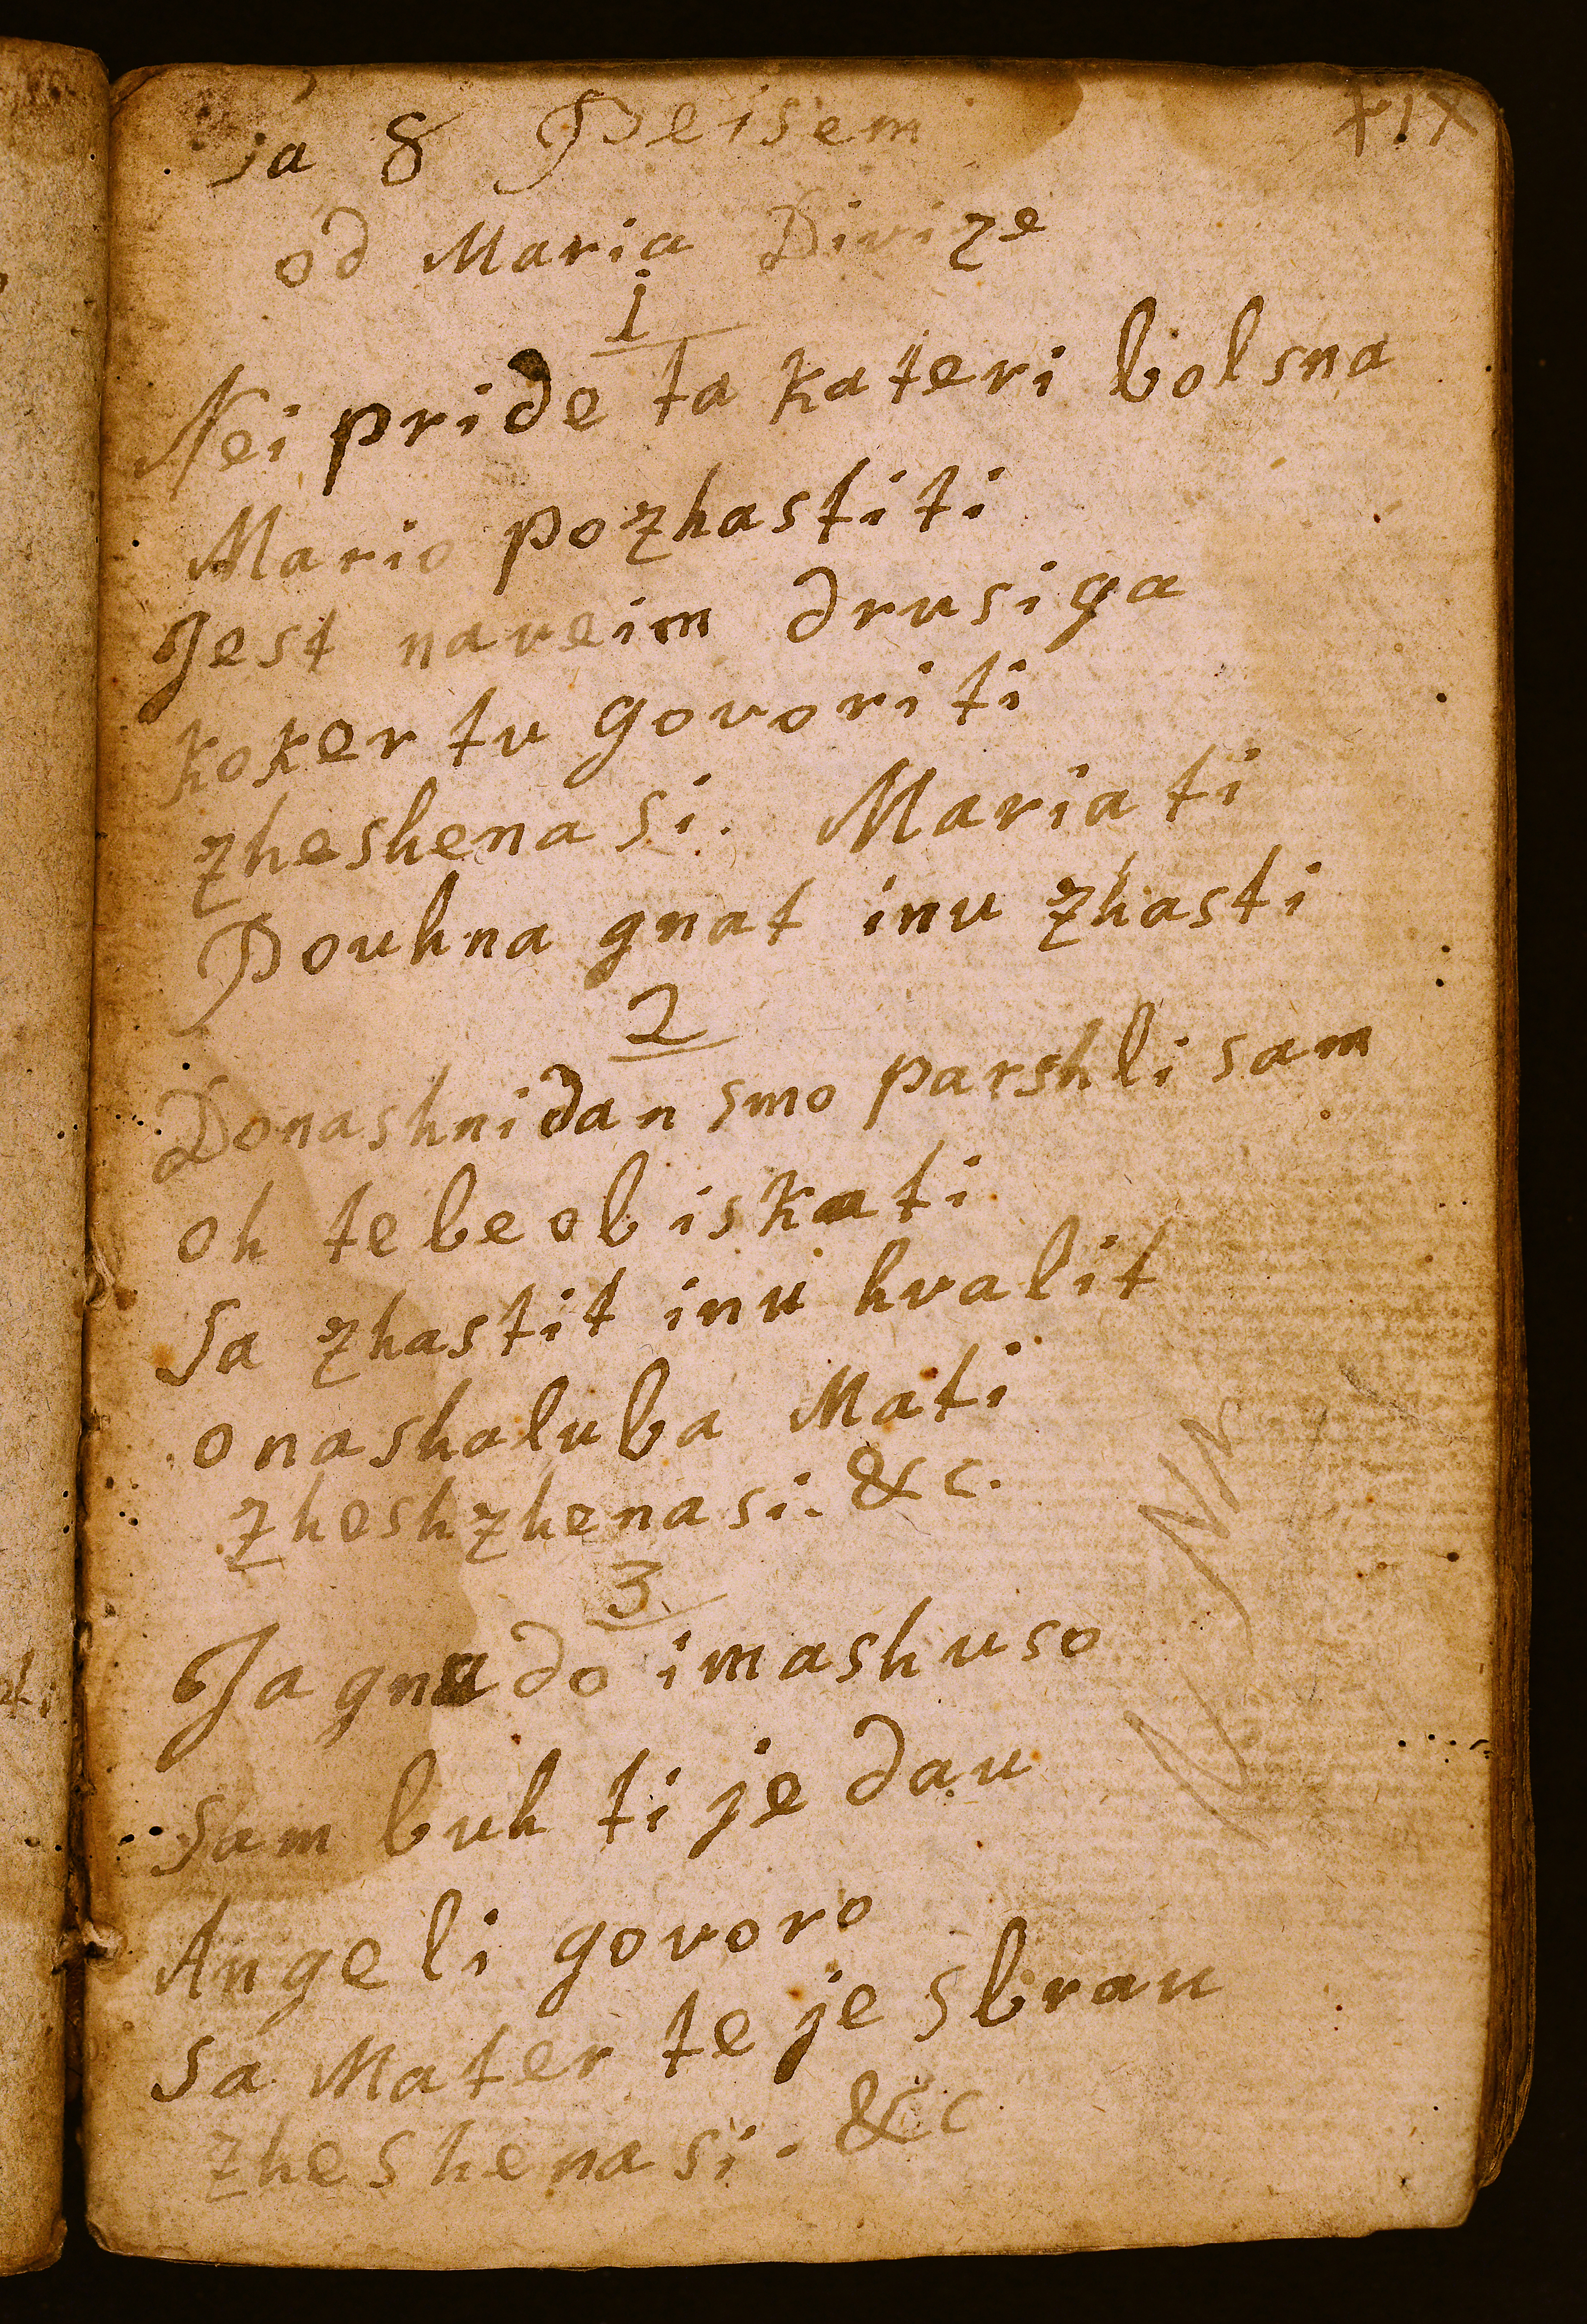 XIX
sa 8 Peisem
od Maria Divize
1
Nei pride ta kateri bolsna
Mario pozhastiti
Jest naveim drusiga
koker tu govoriti
zheshena si. Maria ti
Pouhna gnat inu zhasti
2
Donashnidan smo parshli sam
oh tebe obiskati
Sa zhastit inu hvalit
o nasha luba Mati
zheshzhena si. &c.
3
Ja gnado imash uso
Sam buh ti je dau
Angeli govoro
Sa Mater te je sbrau
zheshena si. &c